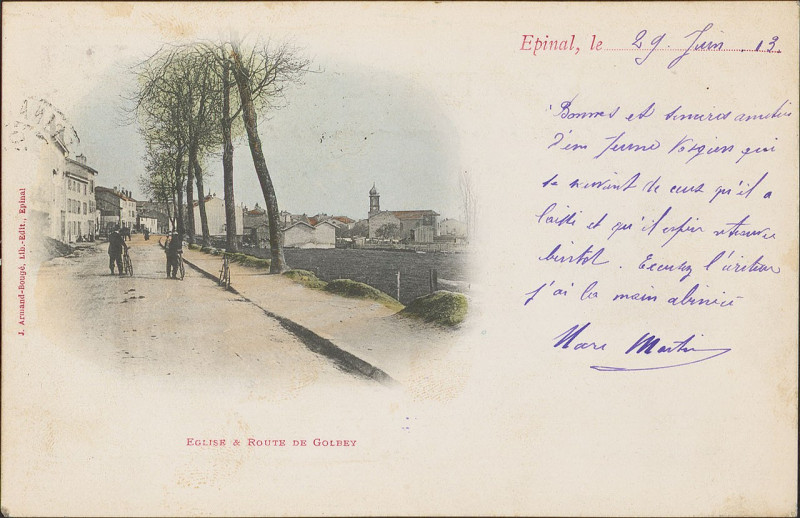 Epinal, le 29 Juin 13.
Bonnes et sincères amitiés
d'un Jeune Vosgien qui
se souvient de ceux qu'il a
laissé et qu'il espère retrouver
bientot. Excusez l'écriture
j'ai la main abimée
Marc Martin
J. Armand-Bougé, Lib.-Edit., Epinal
EGLISE & ROUTE DE GOLBEY